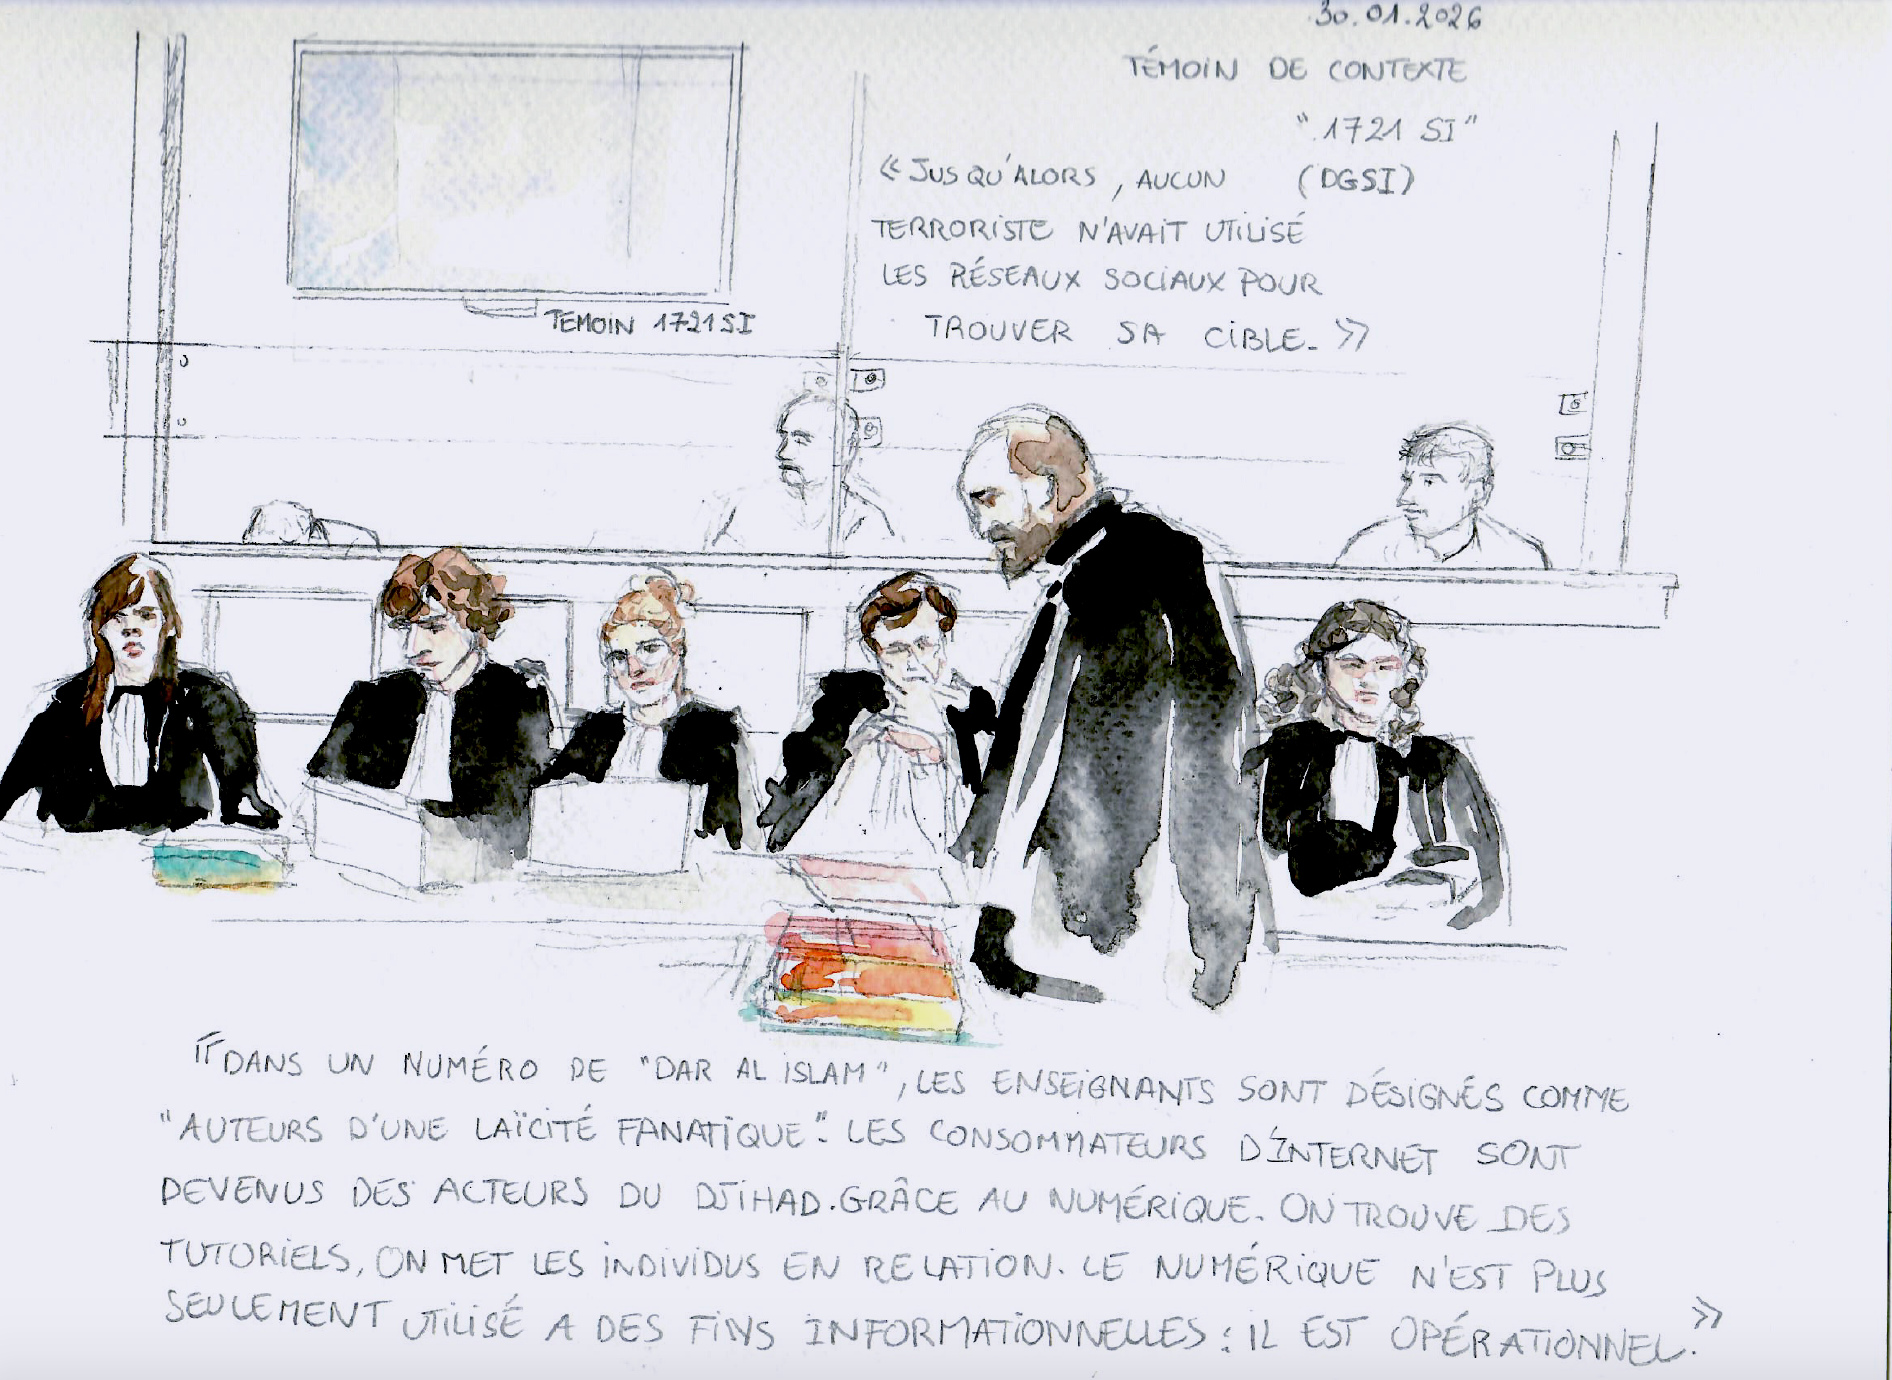 30.01.2026
TÉMOIN DE CONTEXTE
"1721 SI"
« JUSQU'ALORS, AUCUN (DGSI)
TERRORISTE N'AVAIT UTILISÉ
LES RÉSEAUX SOCIAUX POUR
TROUVER SA CIBLE. »
TEMOIN 1721 SI
"DANS UN NUMÉRO DE "DAR AL ISLAM", LES ENSEIGNANTS SONT DÉSIGNÉS COMME
"AUTEURS D'UNE LAÏCITÉ FANATIQUE". LES CONSOMMATEURS D'INTERNET SONT
DEVENUS DES ACTEURS DU DJIHAD. GRÂCE AU NUMÉRIQUE. ON TROUVE DES
TUTORIELS, ON MET LES INDIVIDUS EN RELATION. LE NUMÉRIQUE N'EST PLUS
SEULEMENT UTILISÉ A DES FINS INFORMATIONNELLES : IL EST OPÉRATIONNEL. »